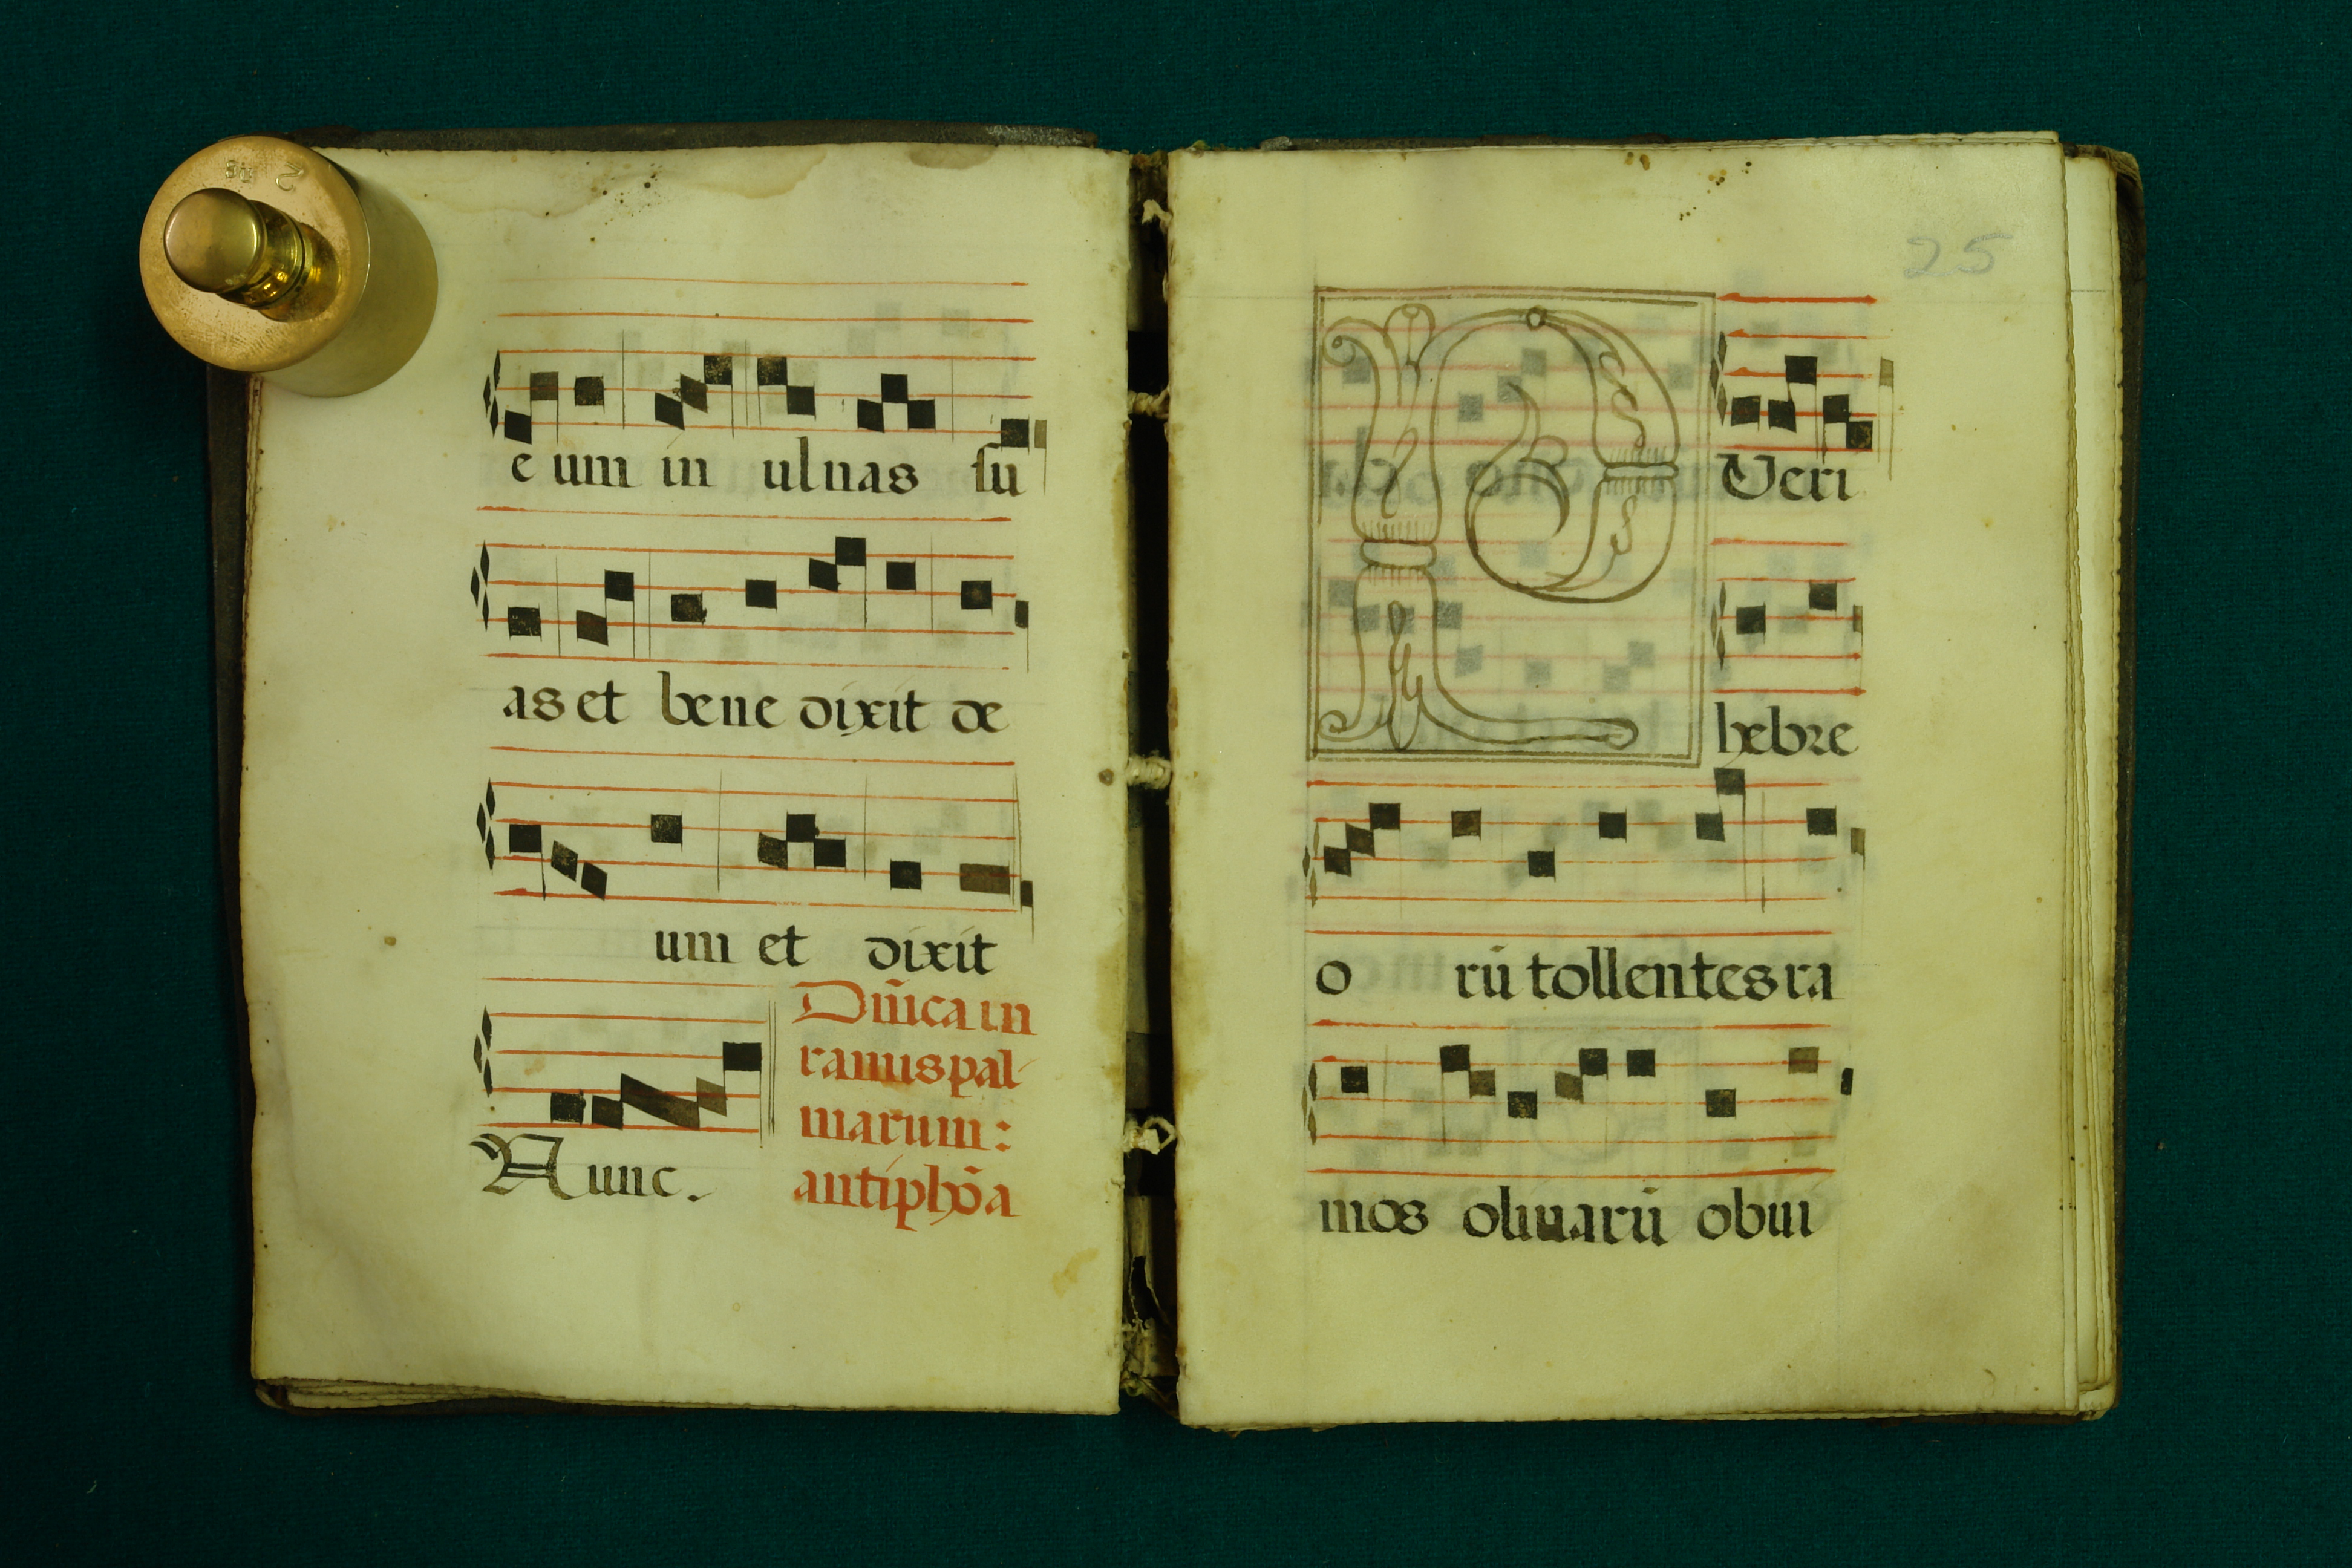 e um in ulnas su
as et bene dixit de
um et dixit
Nunc.
Dñica in
ramis pal-
marum:
antiphōa
25
P Veri
hebre
o rū tollentes ra
mos oliuarū obui